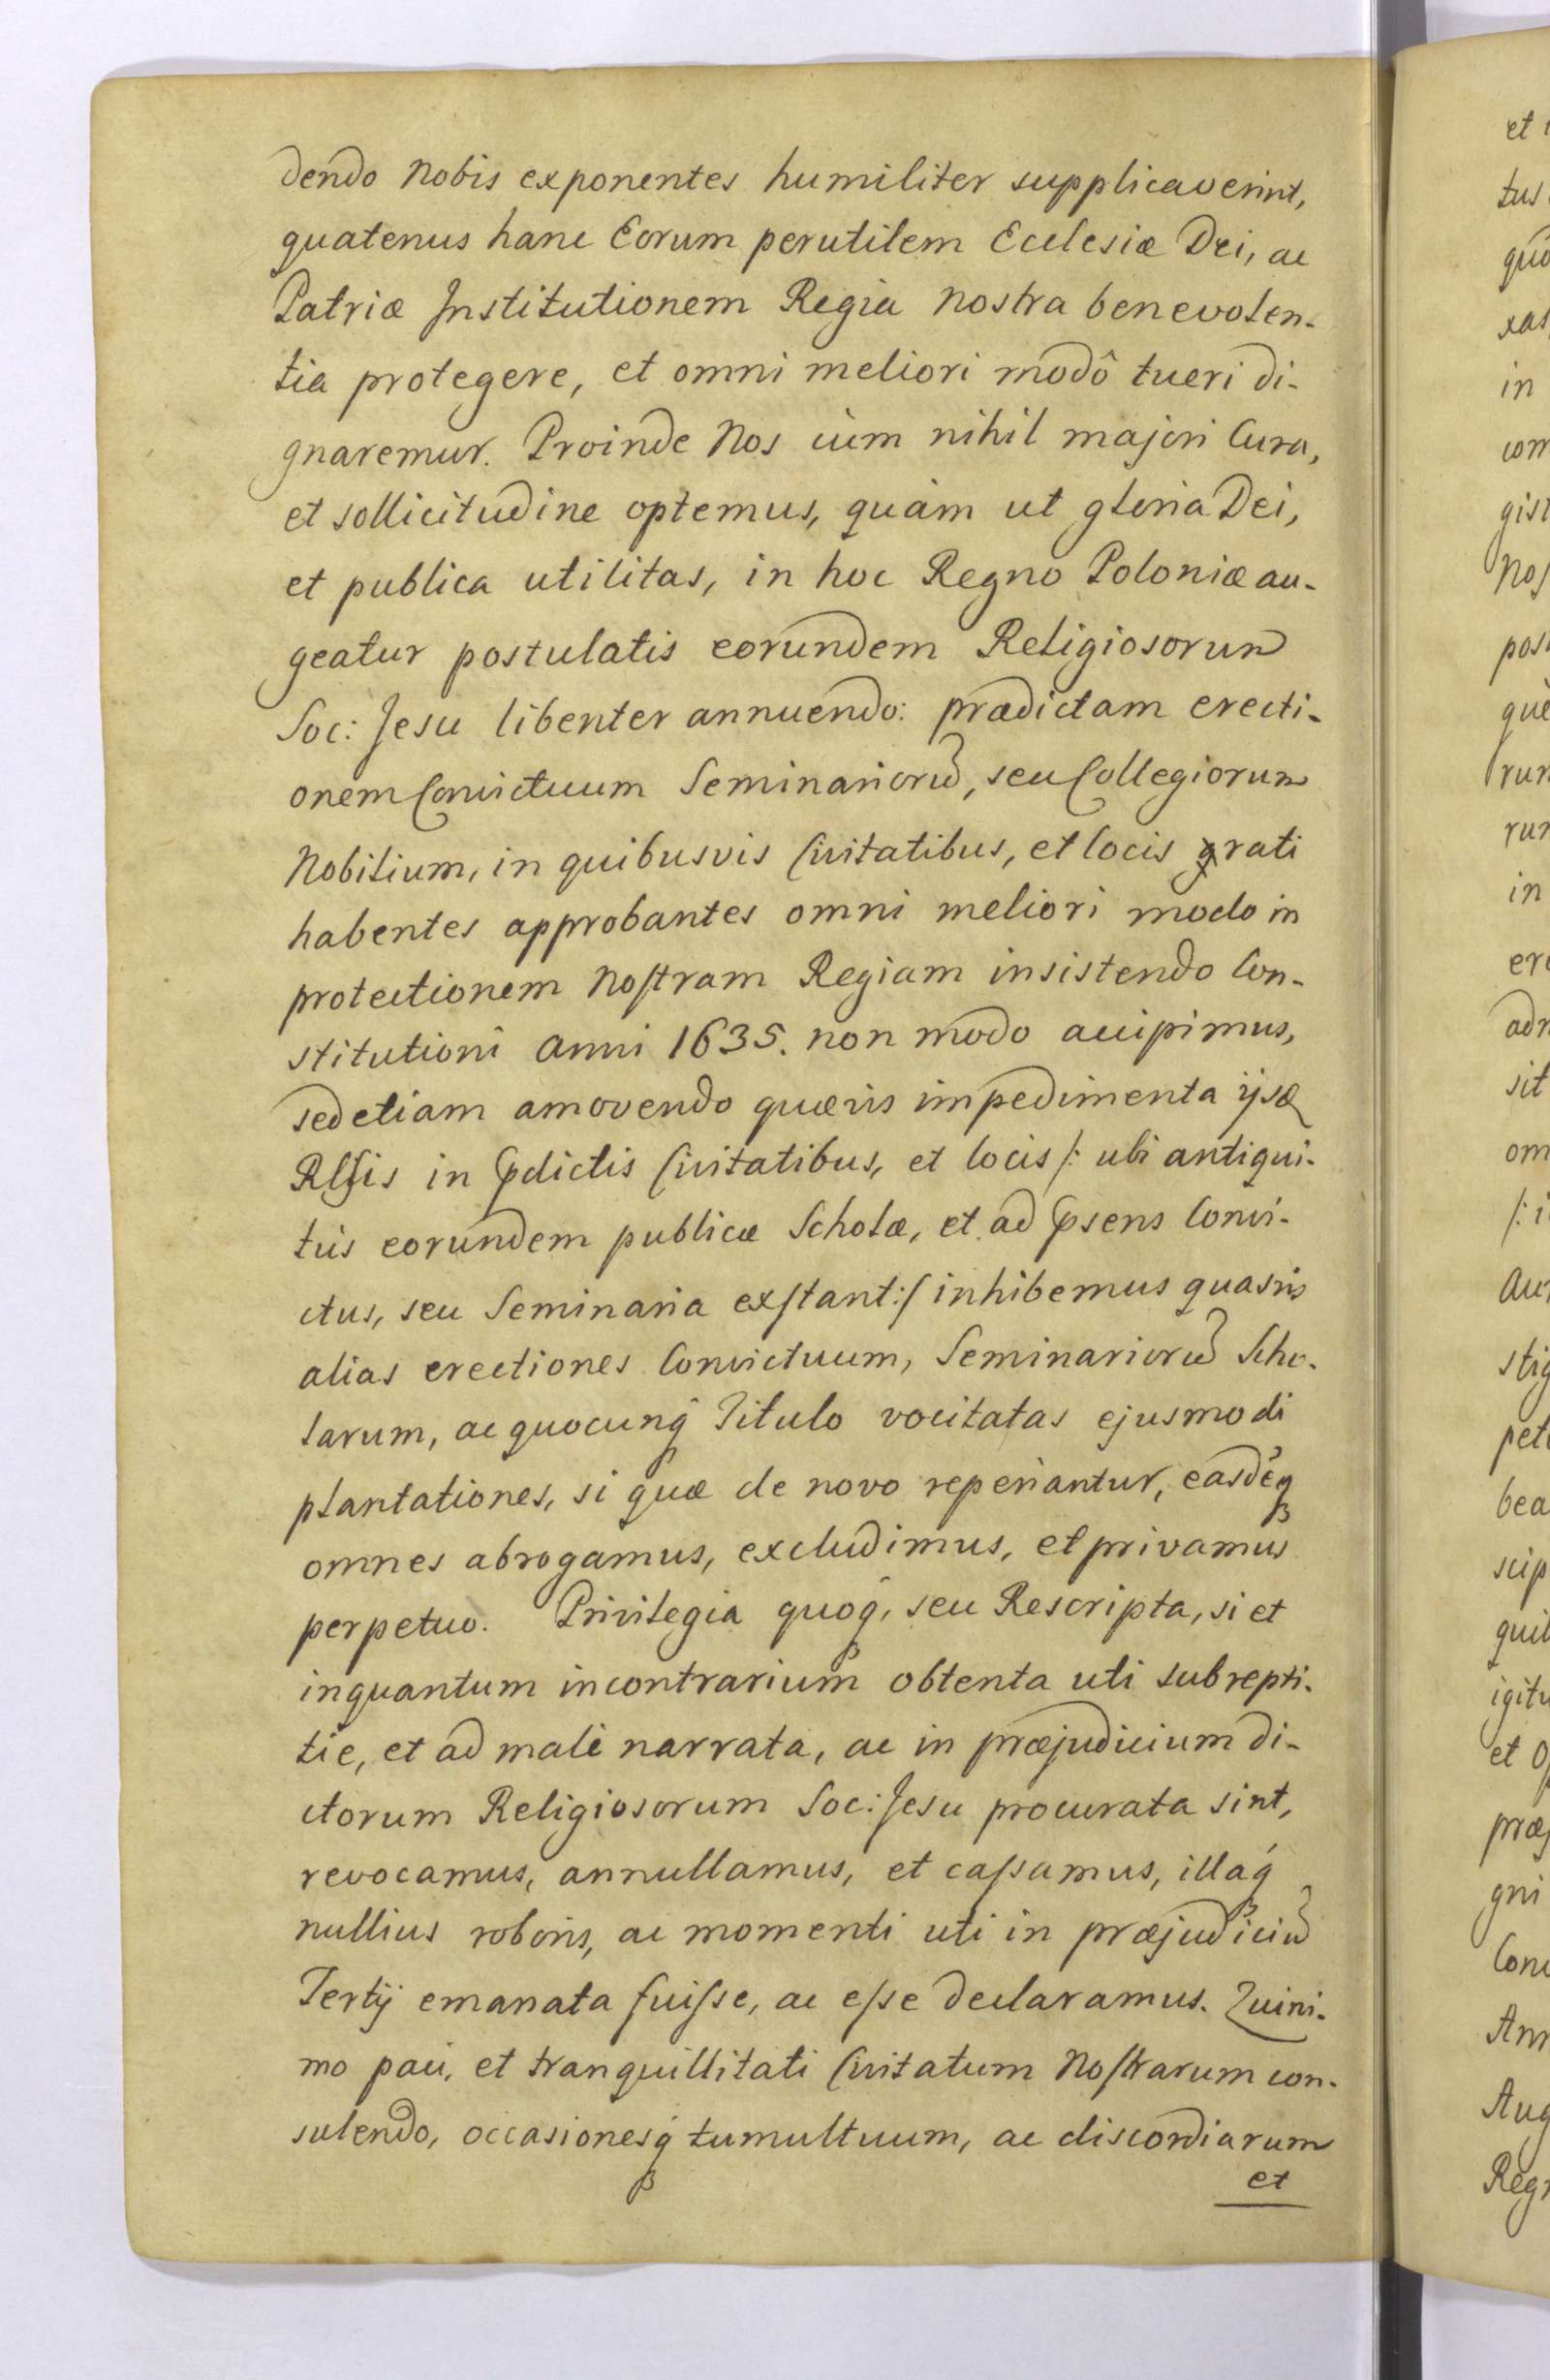 dendo Nobis exponentes humiliter supplicaverint,
quatenus hanc Eorum perutilem Ecclesiæ Dei, ac
Patriæ Institutionem Regia nostra benevolen-
tia protegere, et omni meliori modô tueri di-
gnaremur. Proinde Nos cùm nihil majori Cura,
et sollicitudine optemus, quàm ut gloria Dei,
et publica utilitas, in hoc Regno Poloniæ au-
geatur postulatis eorundem Religiosorum
Soc: Jesu libenter annuendo: prædictam erecti-
onem Convictuum Seminariorũ, seu Collegiorum
Nobilium, in quibusvis Civitatibus, et locis rati
habentes approbantes omni meliori modo in
protectionem Nostram Regiam insistendo Con-
stitutioni Anni 1635. non modo accipimus,
sed etiam amovendo quævis impedimenta ijsdẽ
Rlgsis in pdictis Civitatibus, et locis /: ubi antiqui-
tùs eorundem publicæ Scholæ, et ad psens Convi-
ctus, seu Seminaria exstant :/ inhibemus quasvis
alias erectiones Convictuum, Seminariorũ Scho-
larum, ac quocunq́ Titulo vocitatas ejusmodi
plantationes, si quæ de novo reperiantur, easdẽq
omnes abrogamus, excludimus, et privamus
perpetuo. Privilegia quoq́, seu Rescripta, si et
inquantum in contrarium obtenta uti subrepti-
tie, et ad malè narrata, ac in præjudicium di-
ctorum Religiosorum Soc: Jesu procurata sint,
revocamus, annullamus, et cassamus, illaq́
nullius roboris, ac momenti uti in præjudiciũ
Tertij emanata fuisse, ac esse declaramus. Quini-
mo paci, et tranquillitati Civitatum Nostrarum con-
sulendo, occasionesq́ tumultuum, ac discordiarum
et